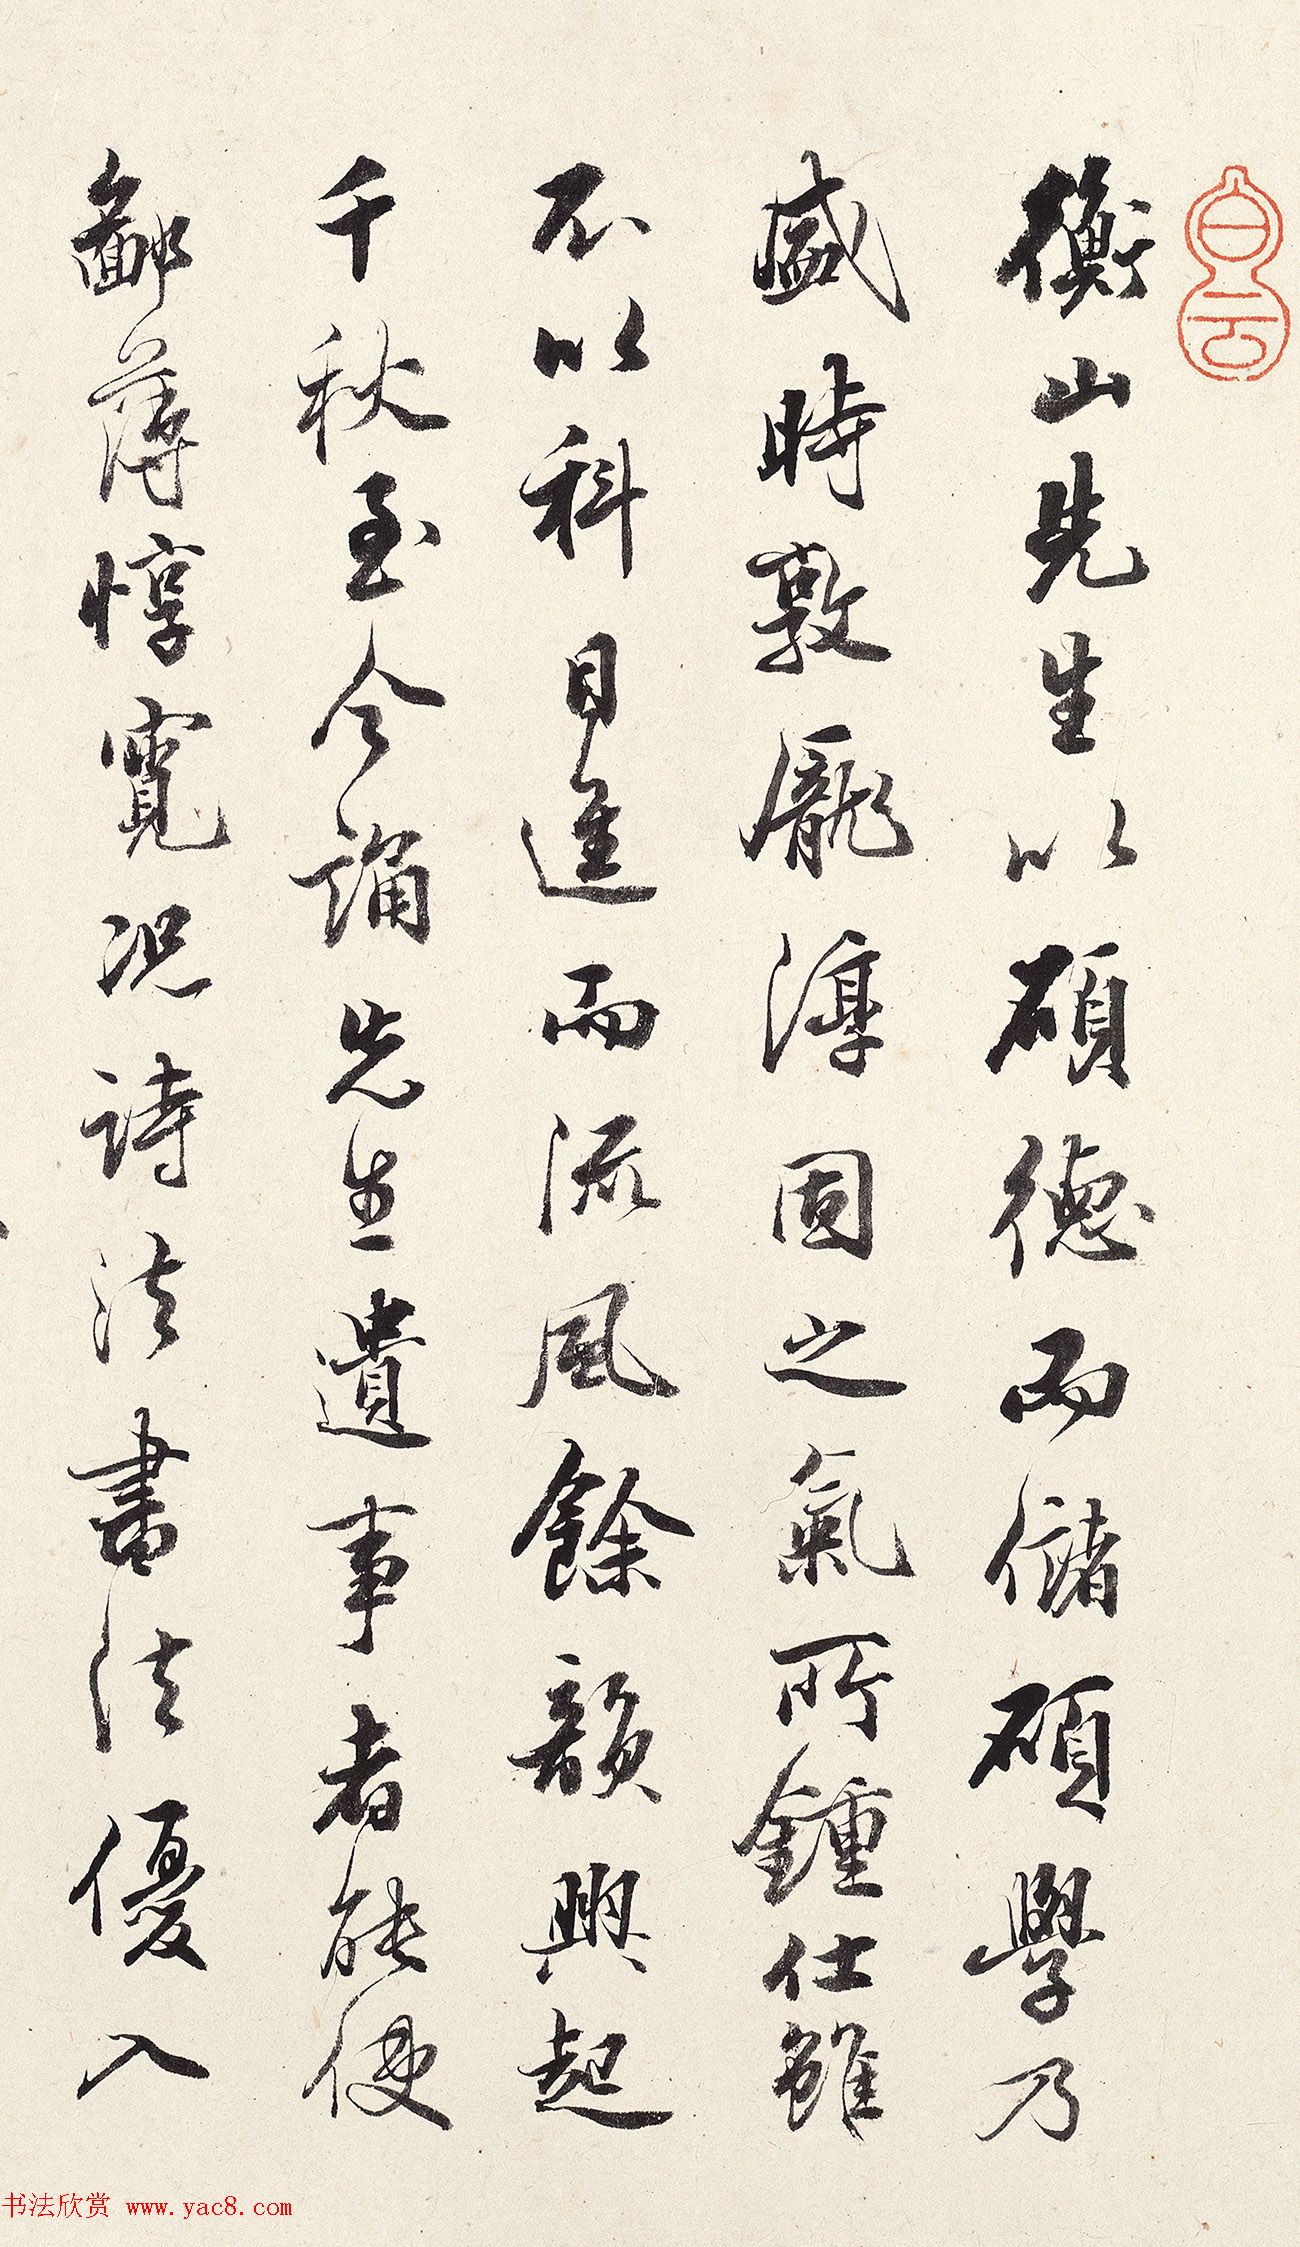 白云
衡山先生以碩德而儲碩學乃
盛時敦龐淳固之氣所鍾仕雖
不以科目進而流風餘韻興起
千秋至今誦先生遺事者能使
鄙薄惇寬況詩法書法優入
书法欣赏 www.yac8.com